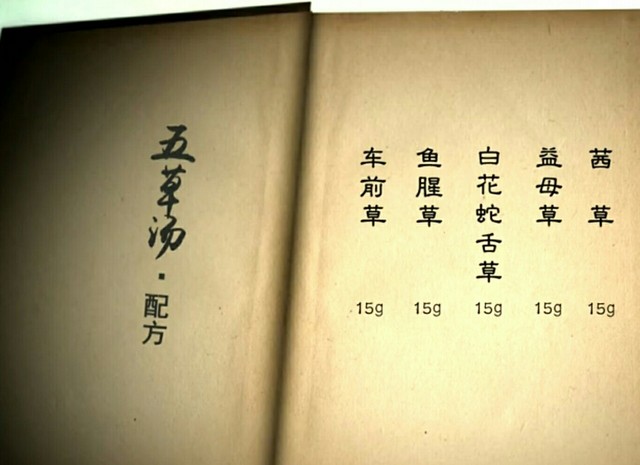 五草汤·配方
车前草 15g
鱼腥草 15g
白花蛇舌草 15g
益母草 15g
茜草 15g